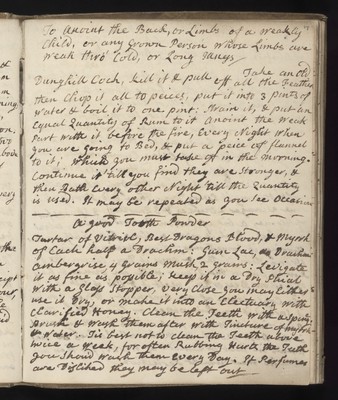 To Anoint the Back, or Limbs of a Weakly
Child, or any Grown Person whose Limbs are
Weak thro' Cold, or Long
Take an old
Dunghill Cock, kill it & pull off all the Feathers
then Chop it all to peices, put it into 3 pints of
Water & boil it to one pint: Strain it, & put an
Equal Quantity of Rum to it Anoint the Weak
Part with it before the fire, Every Night when
you are going to Bed, & put a peice of flannel
to it; which you must take off in the morning.
Continue it till you find they are Stronger, &
then Bath Every other Night till the Quantity
is used. It may be repeated as you see Occasion
A good Tooth Powder
Tartar of Vitriol, Best Dragons Blood, & Myrrh
of Each half a Drachm: Gum Lac, a Drachm
Ambergrise 4 grains Musk 2 grains: Levigate
it as fine as possible; keep it in a Dry Phial
with a Glass Stopper, very close you may Either
use it Dry, or make it into an Electuary with
Clarified Honey. Clean the Teeth with a Spung.
Brush & Wash them after with Tincture of myrrh
& Water. Tis best not to clean the Teeth above
twice a Week, for often Rubbing Hurts the Teeth
you Shoud wash them every Day. If Perfumes
are Disliked they may be left out